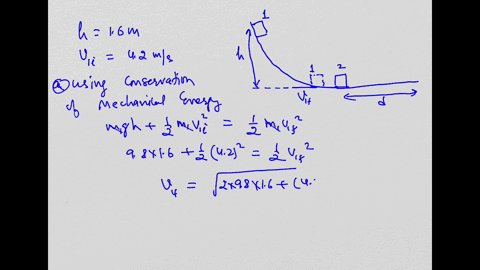 h = 1.6 m
V₁ᵢ = 4.2 m/s
ⓐ Using Conservation
of Mechanical Energy
m₁gh + ½ m₁V₁ᵢ² = ½ m₁V₁f²
9.8×1.6 + ½ (4.2)² = ½ V₁f²
V₁f = √2×9.8×1.6 + (4.
1
h
1
2
V₁f
d